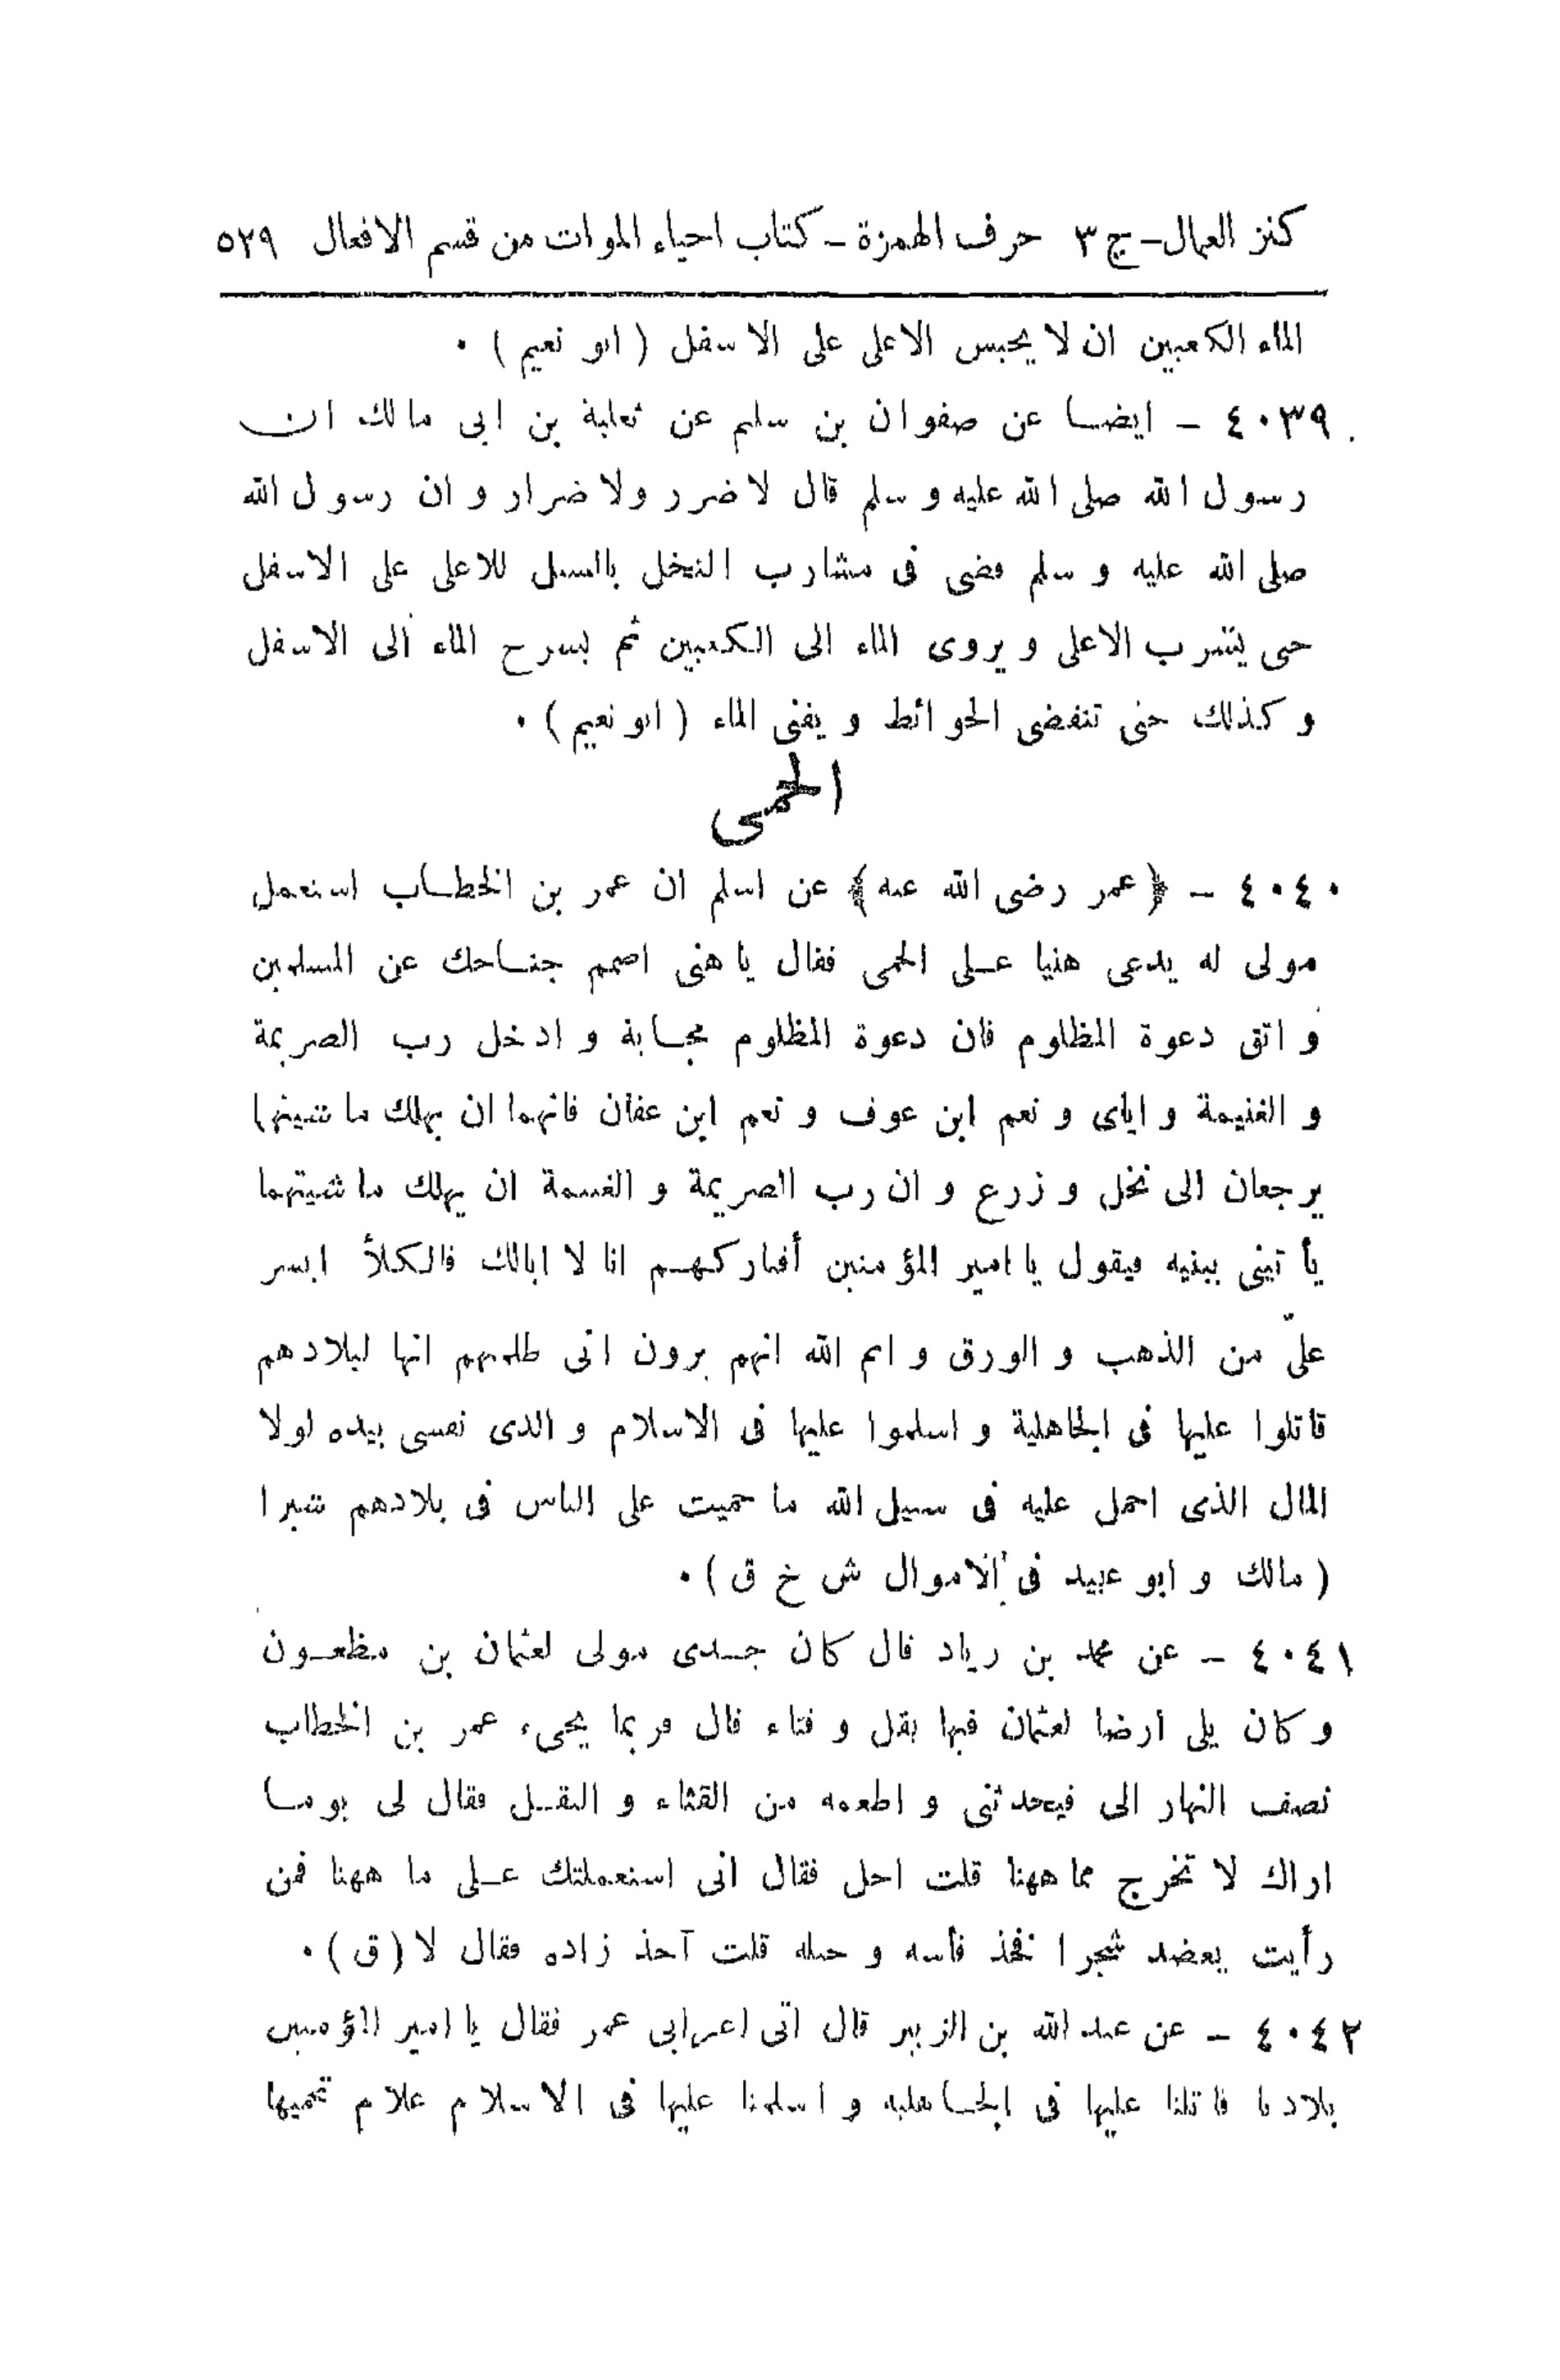 كنز العمال - ج ٣ حرف الهمزة - كتاب احياء الموات من قسم الافعال ٥٢٩
الماء الكعبين ان لا يحبس الاعلى على الاسفل ( ابو نعيم ) ٠
٤٠٣٩ - ايضا عن صفوان بن سليم عن ثعلبة بن ابى مالك ان
رسول الله صلى الله عليه و سلم قال لا ضرر ولا ضرار و ان رسول الله
صلى الله عليه و سلم قضى فى مشارب النخل بالسيل للاعلى على الاسفل
حتى يشرب الاعلى و يروى الماء الى الكعبين ثم يسرح الماء الى الاسفل
و كذلك حتى تنقضى الحوائط و يفنى الماء ( ابو نعيم ) ٠
الحمى
٤٠٤٠ - ﴿عمر رضى الله عنه﴾ عن اسلم ان عمر بن الخطاب استعمل
مولى له يدعى هنيا على الحمى فقال يا هنى اضمم جناحك عن المسلمين
و اتق دعوة المظلوم فان دعوة المظلوم مجابة و ادخل رب الصريمة
و الغنيمة و اياى و نعم ابن عوف و نعم ابن عفان فانهما ان يهلك ماشيتهما
يرجعان الى نخل و زرع و ان رب الصريمة و الغنيمة ان يهلك ماشيتهما
يأتينى ببنيه فيقول يا امير المؤمنين أفتاركهم انا لا ابالك فالكلأ ايسر
علىّ من الذهب و الورق و ايم الله انهم يرون انى ظلمتهم انها لبلادهم
قاتلوا عليها فى الجاهلية و اسلموا عليها فى الاسلام و الذى نفسى بيده لولا
المال الذى احمل عليه فى سبيل الله ما حميت على الناس فى بلادهم شبرا
( مالك و ابو عبيد فى الاموال ش خ ق ) ٠
٤٠٤١ - عن محمد بن زياد قال كان جدى مولى لعثمان بن مظعون
و كان يلى ارضا لعثمان فيها بقل و قثاء قال فربما يجىء عمر بن الخطاب
نصف النهار الى فيحدثنى و اطعمه من القثاء و البقل فقال لى يوما
اراك لا تخرج مما ههنا قلت اجل فقال انى استعملتك على ما ههنا فمن
رأيت يعضد شجرا فخذ فأسه و حبله قلت آخذ زاده فقال لا ( ق ) ٠
٤٠٤٢ - عن عبد الله بن الزبير قال اتى اعرابى عمر فقال يا امير المؤمنين
بلادنا قاتلنا عليها فى الجاهلية و اسلمنا عليها فى الاسلام علام تحميها